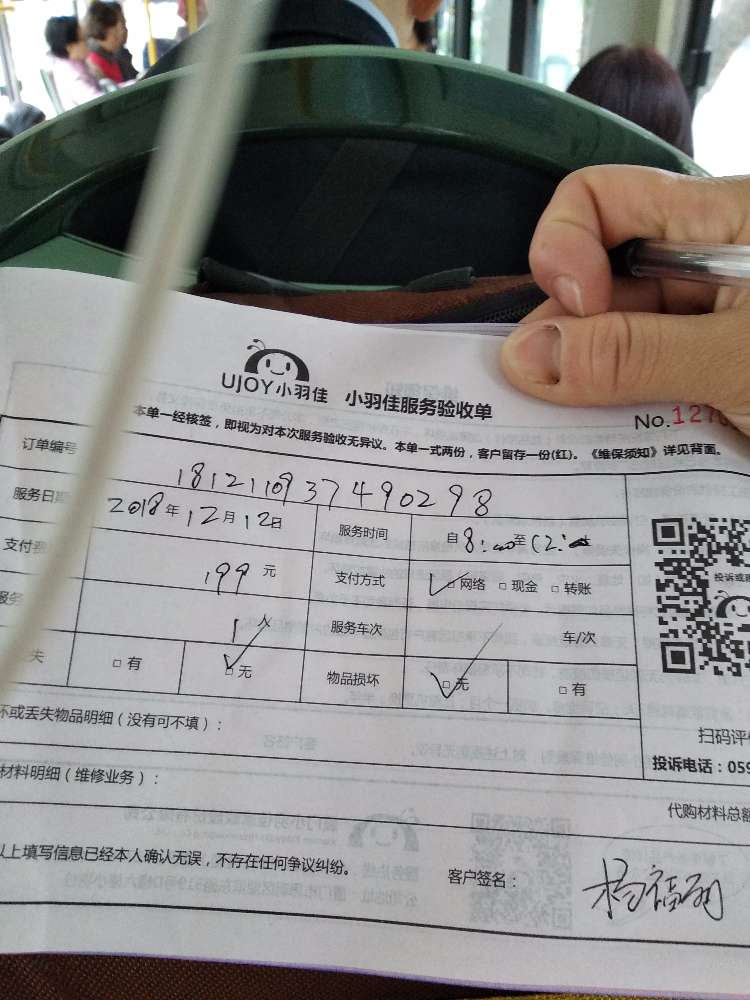 UJOY小羽佳 小羽佳服务验收单
No.127
本单一经核签，即视为对本次服务验收无异议。本单一式两份，客户留存一份(红)。《维保须知》详见背面。
订单编号 1812110937490298
服务日期 2018年12月12日 服务时间 自8:00至12:00
支付费 199元 支付方式 ☑网络 □现金 □转账
服务 1人 服务车次 车/次
失 □有 ☑无 物品损坏 ☑无 □有
投诉或
坏或丢失物品明细（没有可不填）：
扫码评价
投诉电话：059
材料明细（维修业务）：
代购材料总额
以上填写信息已经本人确认无误，不存在任何争议纠纷。
客户签名：